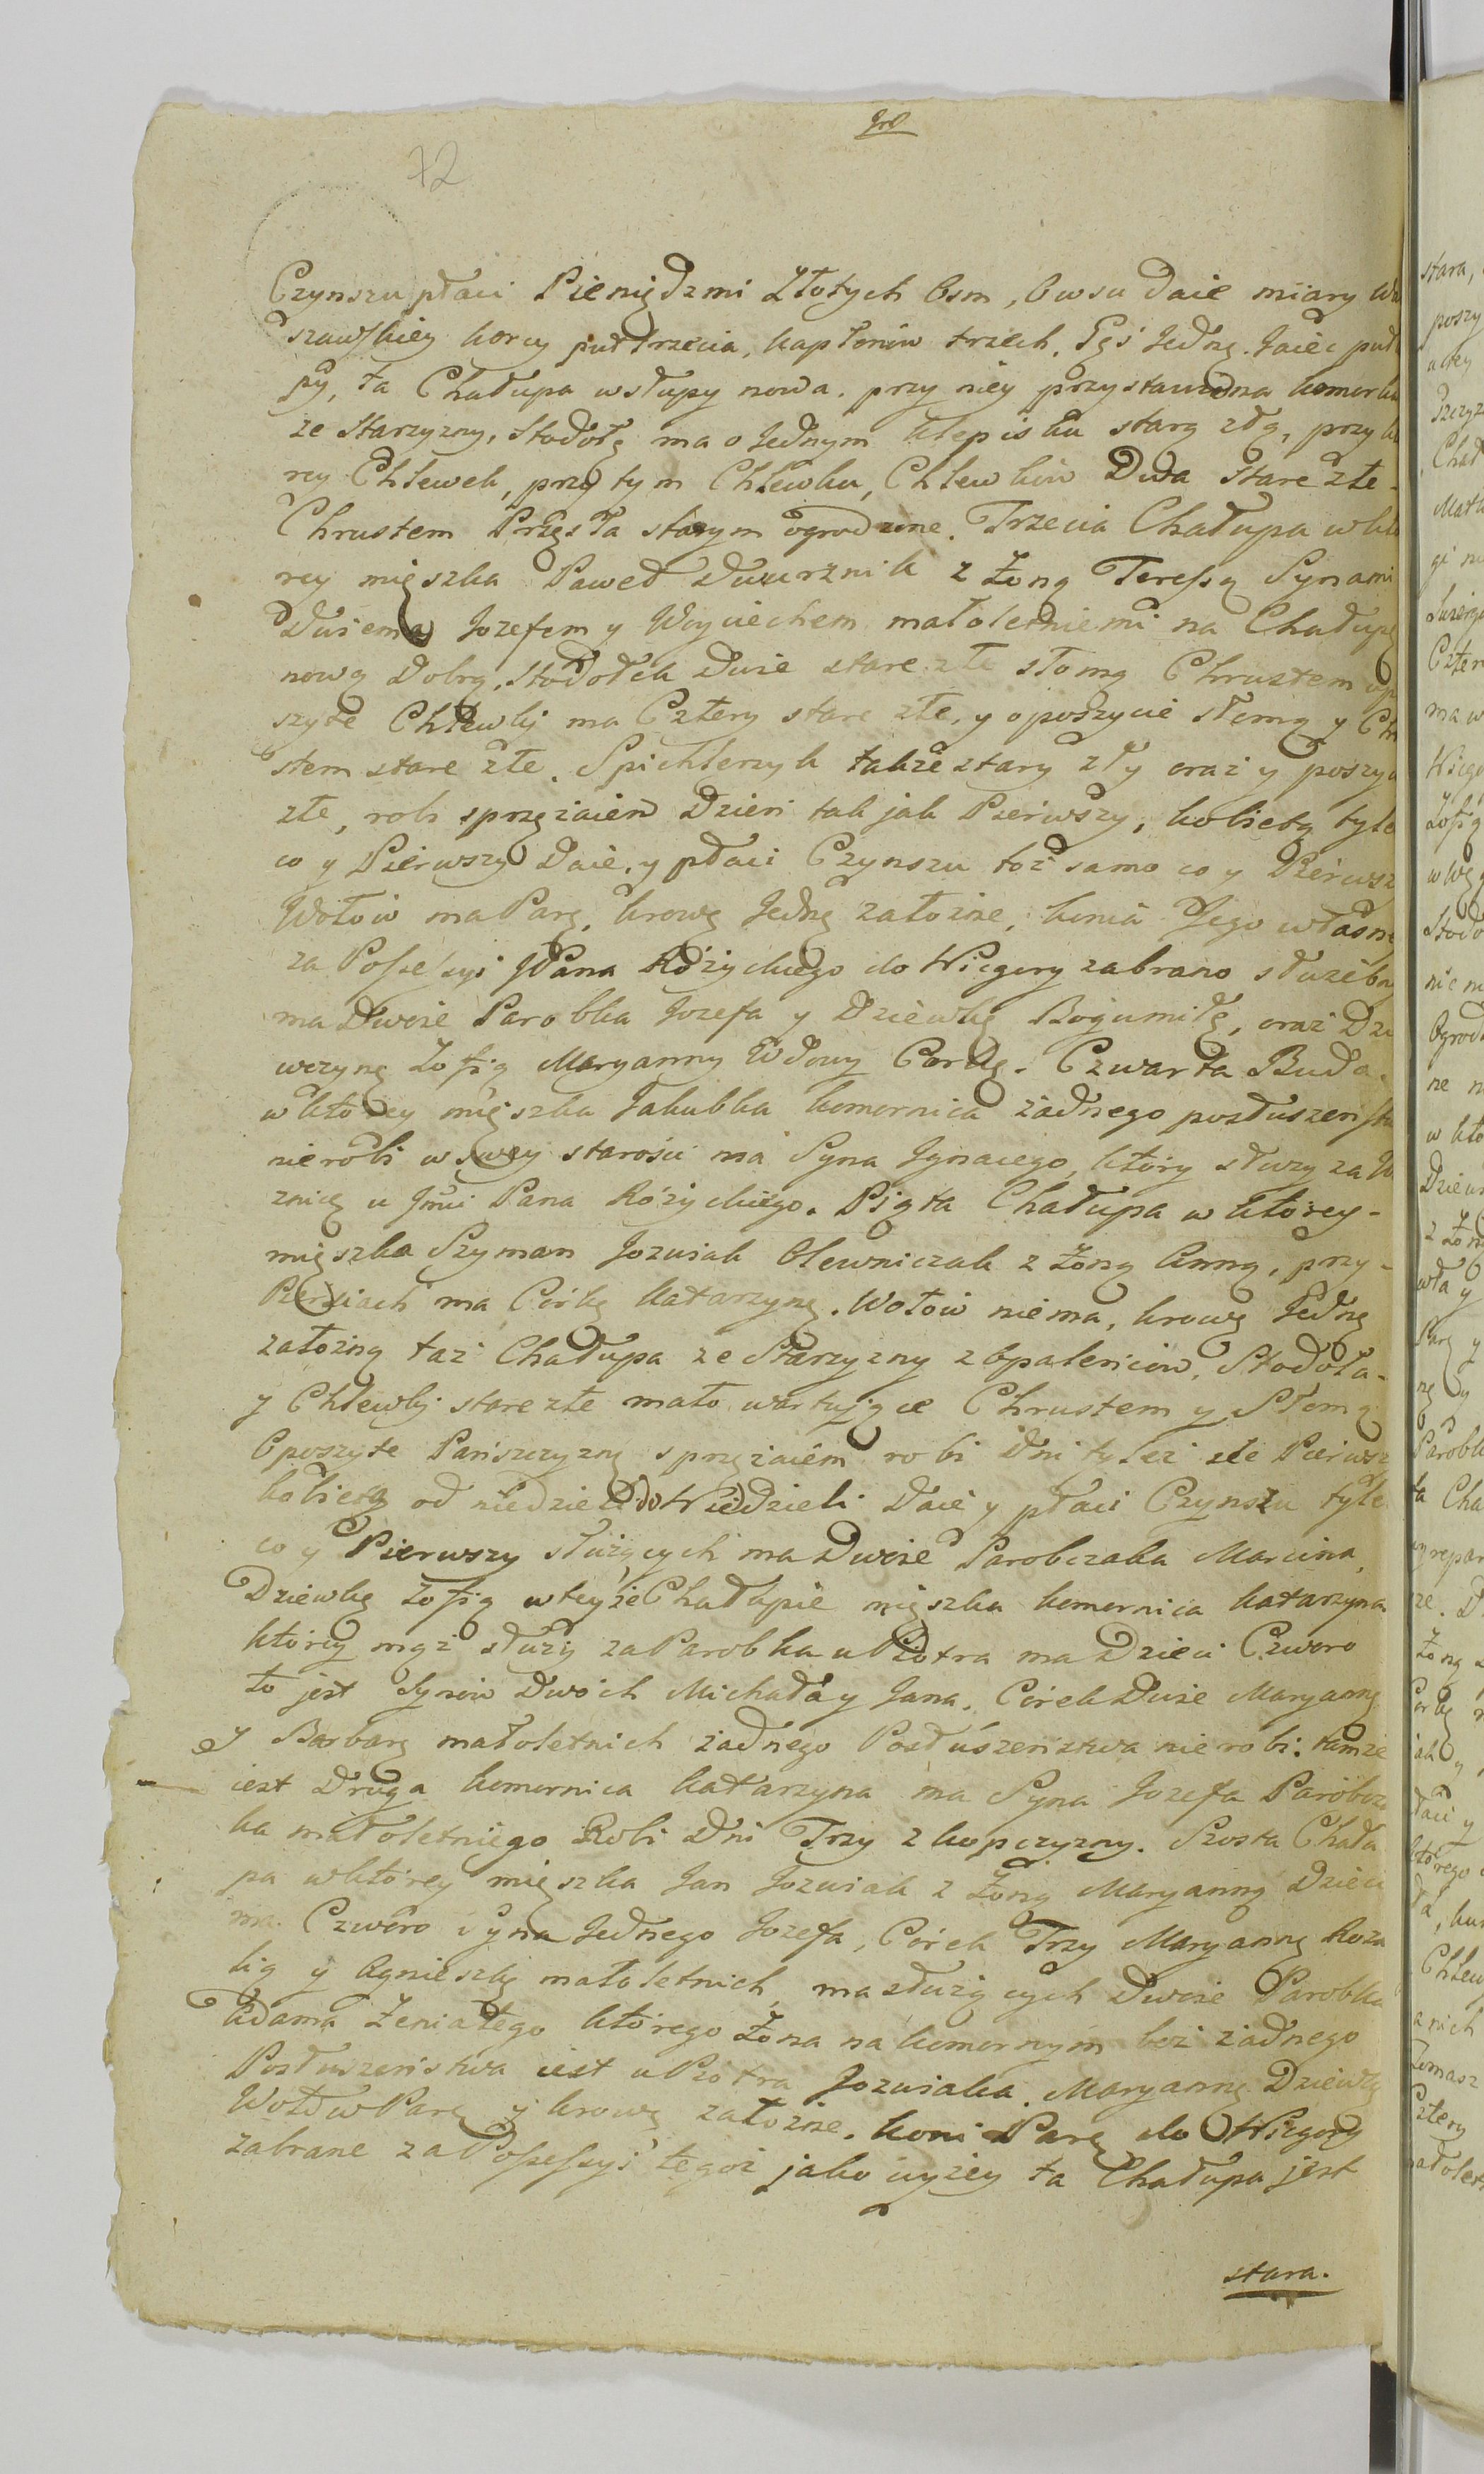 72
Czynszu płaci Pieniędzmi Złotych Osm, Owsa Daie miary Wa
szawskiey korcy puł trzecia, kapłonów trzech, Gęś Jednę. Jaiec puł
py, ta Chałupa wsłupy nowa. przy niey przystawiona komorka
ze starzyzny, Stodołę ma o Jednym klepisku starą złą, przy kto
rey Chlewek, przy tym Chlewku, Chlewków Dwa stare złe.
Chrustem Przęsła starym ogrodzone. Trzecia Chałupa w kto
rey mięszka Paweł Dwurznik z Żoną Teressą Synami
Dwiema Jozefem y Woyciechem małoletniemi na Chałupę
nową Dobrą. Stodołek Dwie stare złe słomą Chrustem op
szyte Chlewky ma Cztery stare złe, y oposzycie słomą y Chru
stem stare złe. Spichlerzyk także stary zły oraz y poszyc
złe, robi sprzężaiem Dzień tak jak Pierwszy, kobietą tyle
co y Pierwszy Daie, y płaci Czynszu toż samo co y Pierwsz
Wołów ma Parę, krowę Jednę założne, konia Jego własne
za Possessyi JPana Różyckiego do Wicgory zabrano służebny
ma Dwoie Parobka Jozefa y Dziewkę Bogumiłę, oraz Dzi
wczynę Zofią Maryanny Wdowy Corkę. Czwarta Buda.
w ktorey mięszka Jakubka komornica żadnego posłuszeństw
nierobi w swey starości ma Syna Jgnacego, ktory służy za W
znicę u Jmci Pana Różyckiego. Piąta Chałupa w ktorey-
mięszka Szyman Jozwiak Olewniczak z Żoną Anną, przy-
Piersiach ma Córkę katarzynę. Wołów niema, krowę Jednę
założną taż Chałupa ze Starzyzny z opaleniców, Stodoła-
y Chlewky stare złe mało wartuiące Chrustem y Słomą
Oposzyte Pańszczyznę sprzężaiem robi Dni tyleż ile Pierwsz
kobietą od niedzieli do Niedzieli Daie y płaci Czynszu tyle
co y Pierwszy służących ma Dwoie Parobczaka Marcina,
Dziewkę Zofią w teyże Chałupie mięszka komornica katarzyna
ktorey mąż służy za Parobka u Piotra ma Dzieci Czworo
to jest Synów Dwóch Michała y Jana, Córek Dwie Maryannę
y Barbarę małoletnich żadnego Posłuszeństwa nierobi. tamże
iest Druga komornica katarzyna ma Syna Jozefa Parobcza
ka małoletniego Robi Dni Trzy z kopczyzny. Szosta Chału
pa w ktorey mięszka Jan Jozwiak z Żoną Maryanną Dzieci
ma Czworo Syna Jednego Jozefa, Córek Trzy Maryannę Roza
lią y Agnieszkę małoletnich, ma służących Dwoie Parobka
Adama Żeniatego ktorego Żona na komornym bez żadnego
Posłuszeństwa iest u Piotra Jozwiaka. Maryannę Dziewkę
Wołów Parę y krowę załoźne. koni Parę do Wicgory
zabrane za Possessyi tegoż jako wyżey ta Chałupa jest
stara.